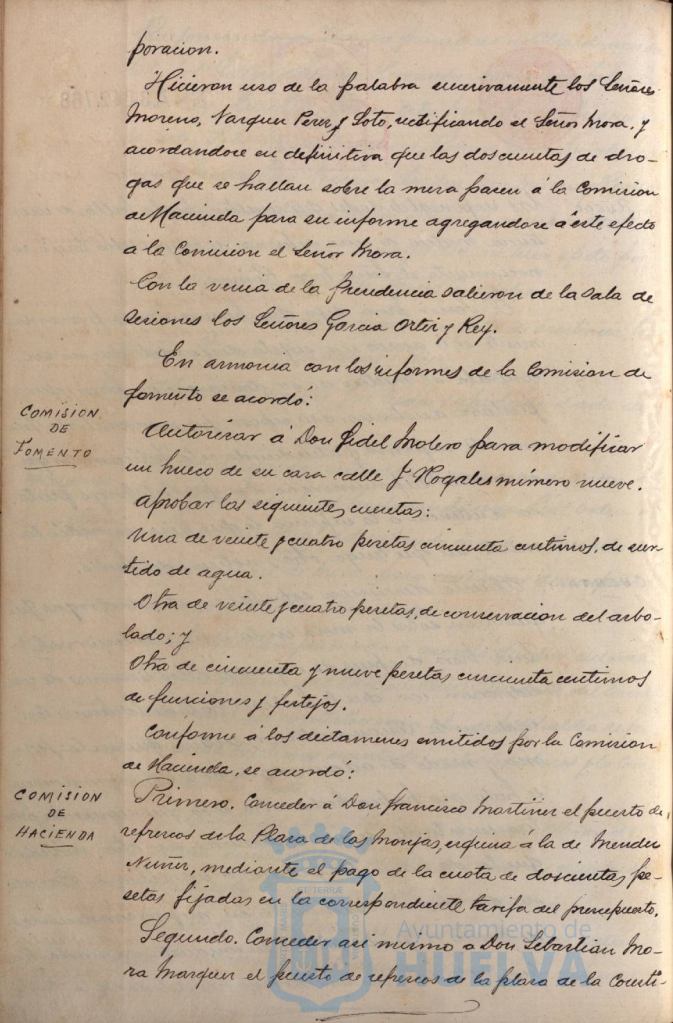 poracion.
Hicieron uso de la palabra sucesivamente los Señores
Moreno, Vazquez Perez y Soto, rectificando el Señor Mora, y
acordandose en definitiva que las dos cuentas de dro-
gas que se hallan sobre la mesa pasen á la Comision
de Hacienda para su informe agregandose á este efecto
á la Comision el Señor Mora.
Con la venia de la Presidencia salieron de la sala de
sesiones los Señores Garcia Ortiz y Rey.
En armonia con los informes de la Comision de
fomento se acordó:
COMISION
DE
FOMENTO
Autorizar á Don Fidel Molero para modificar
un hueco de su casa calle J. Nogales número nueve.
Aprobar las siguientes cuentas:
Una de veinte y cuatro pesetas cincuenta centimos, de sur-
tido de agua.
Otra de veinte y cuatro pesetas, de conservacion del arbo-
lado; y
Otra de cincuenta y nueve pesetas cincuenta centimos
de funciones y festejos.
Conforme á los dictamenes emitidos por la Comision
de Hacienda, se acordó:
COMISION
DE
HACIENDA
Primero. Conceder á Don Francisco Martinez el puesto de
refrescos de la Plaza de las Monjas, esquina á la de Mendez
Nuñez, mediante el pago de la cuota de doscientas pe-
setas fijadas en la correspondiente tarifa del presupuesto.
Segundo. Conceder asi mismo a Don Sebastian Mo-
ra Marquez el puesto de refrescos de la plaza de la Consti-
Ayuntamiento de
HUELVA